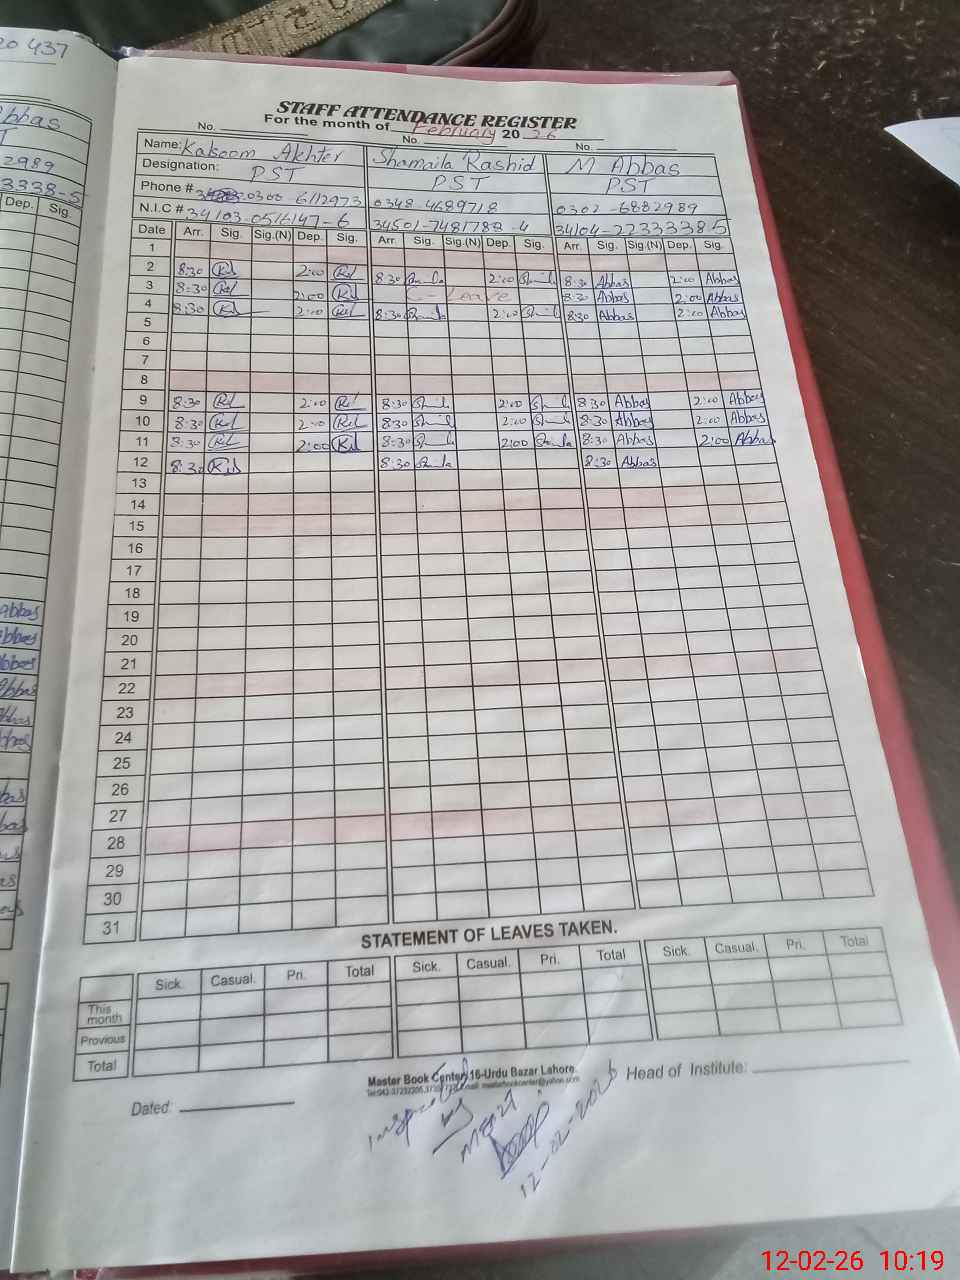 20 437
Abbas
2989
3338-5
Dep. Sig.
STAFF ATTENDANCE REGISTER
For the month of February 20 26
No. No. No.
Name: Kalsoom Akhter Shamaila Rashid M Abbas
Designation: PST PST PST
Phone # 0300-6112973 0348-4689718 0302-6882989
N.I.C # 34103-0516147-6 34501-7481788-4 34104-22333338-5
Date Arr. Sig. Sig.(N) Dep. Sig. Arr. Sig. Sig.(N) Dep. Sig. Arr. Sig. Sig.(N) Dep. Sig.
1
2 8:30 2:00 8:30 2:00 8:30 Abbas 2:00 Abbas
3 8:30 2:00 C-Leave 8:30 Abbas 2:00 Abbas
4 8:30 2:00 8:30 2:00 8:30 Abbas 2:00 Abbas
5
6
7
8
9 8:30 2:00 8:30 2:00 8:30 Abbas 2:00 Abbas
10 8:30 2:00 8:30 2:00 8:30 Abbas 2:00 Abbas
11 8:30 2:00 8:30 2:00 8:30 Abbas 2:00 Abbas
12 8:30 8:30 8:30 Abbas
13
14
15
16
17
18
19
20
21
22
23
24
25
26
27
28
29
30
31
STATEMENT OF LEAVES TAKEN.
Sick. Casual. Pri. Total Sick. Casual. Pri. Total Sick. Casual. Pri. Total
This month
Previous
Total
Master Book Center, 16-Urdu Bazar Lahore.
Dated: Head of Institute:
Inspected
by
12-02-2026
12-02-26 10:19